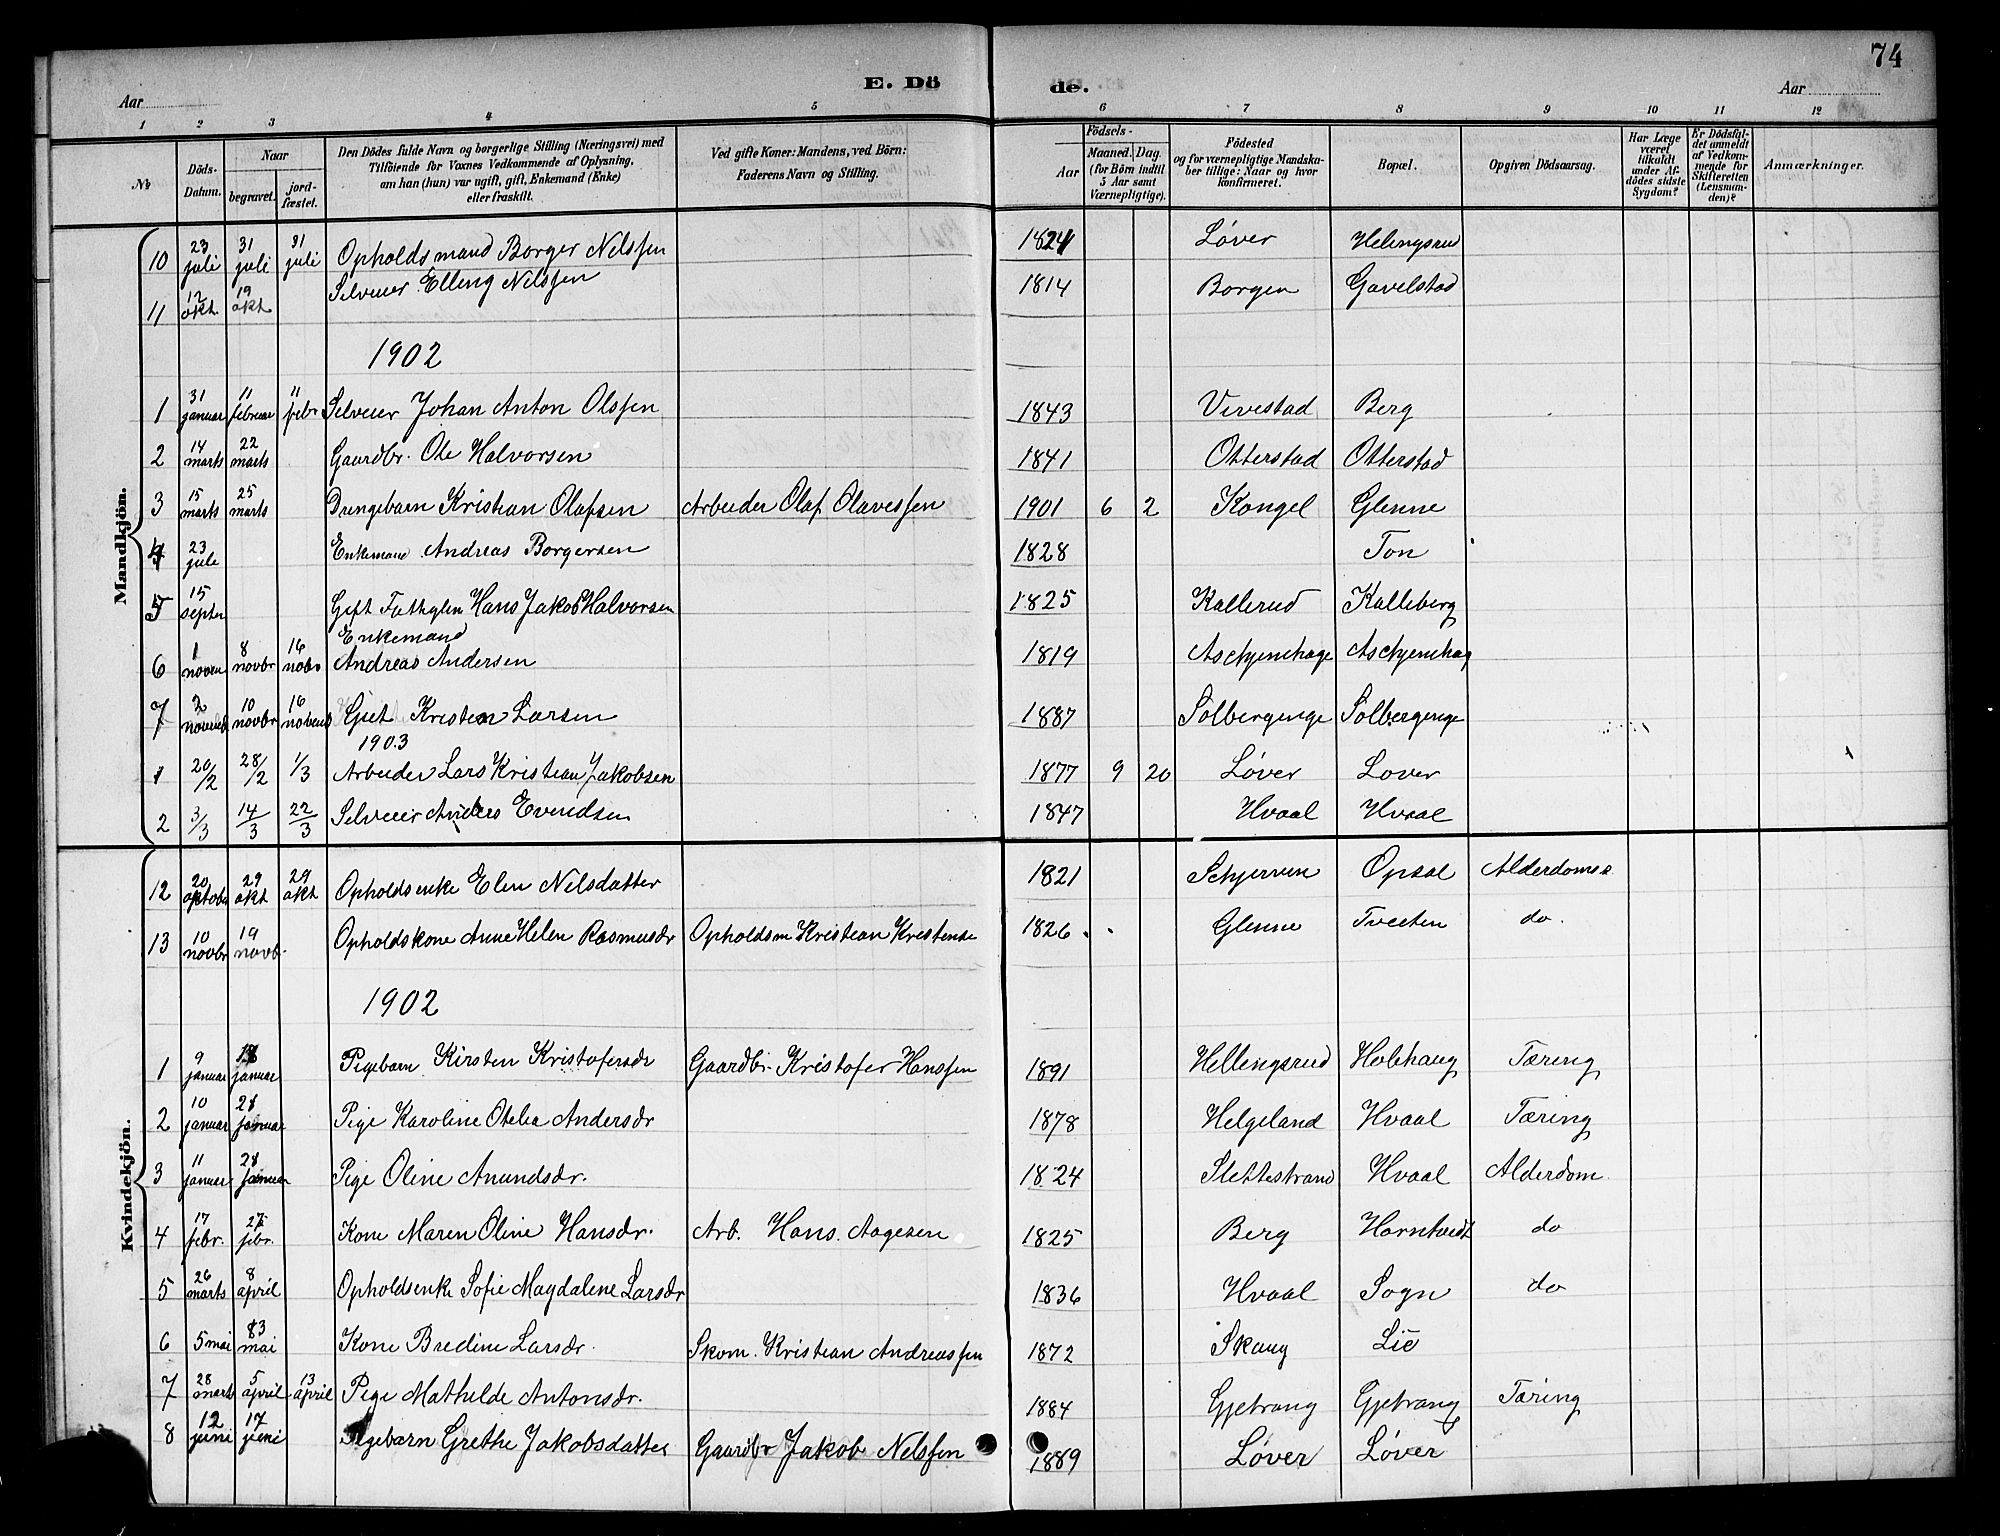 74
E. Dö de.
Aar
Aar
1 2 3 4 5 6 7 8 9 10 11 12
№
Döds-Datum.
Naar
begravet.
jord-fæstet.
Den Dödes fulde Navn og borgerlige Stilling (Næringsvei) med
Tilföiende for Voxnes Vedkommende af Oplysning,
om han (hun) var ugift, gift, Enkemand (Enke)
eller fraskilt.
Ved gifte Koner: Mandens, ved Börn:
Faderens Navn og Stilling.
Födsels-
Aar
Maaned. Dag
(for Börn indtil
5 Aar samt
Værnepligtige).
Födested
og for værnepligtige Mandska-
ber tillige: Naar og hvor
konfirmeret.
Bopæl.
Opgiven Dödsaarsag.
Har Læge
været
tilkaldt
under Af-
dödes sidste
Sygdom?
Er Dödsfal-
det anmeldt
af Vedkom-
mende for
Skifteretten
(Lensman-
den)?
Anmærkninger.
Mandkjön.
10 23 juli 31 juli 31 juli Opholdsmand Borger Nilssen 1824 Løver Helingsrud
11 12 okt. 19 okt Selveier Elling Nilssen 1814 Borgen Gavelstad
1902
1 31 januar 11 februar 11 febr Selveier Johan Anton Olssen 1843 Vivestad Berg
2 14 marts 22 marts Gaardbr. Ole Halvorsen 1841 Otterstad Otterstad
3 15 marts 25 marts Drengebarn Kristian Olafsen Arbeider Olaf Olavessen 1901 6 2 Kongel Glenne
4 23 jule Enkemand Andreas Borgersen 1828 Ton
5 15 septer Gift Hans Jakob Halvorsen 1825 Kallerud Kalleberg
Enkemand
6 1 noven 8 novbr 16 nobr Andreas Andersen 1819 Askjemhage Askjemhag
7 2 10 novbr 16 Gjet Kristen Larsen 1887 Solbergenge Solbergenge
1903
1 20/2 28/2 1/3 Arbeider Lars Kristian Jakobsen 1877 9 20 Løver Lover
2 3/3 14/3 22/3 Selveier Anders Evendsen 1847 Hvaal Hvaal
Kvindekjön.
12 20 oktobr 29 okt 29 okt Opholdsenke Elen Nilsdatter 1821 Schjerven Opsal Alderdoms
13 10 novbr 19 novb. Opholdskone Anne Helen Rasmusdr Opholdsm Kristian Kristense 1826 Glenne Tveeten do.
1902
1 9 januar 18 januar Pigebarn Kirsten Kristofersdr Gaardbr. Kristofer Hanssen 1891 Hellingsrud Holehaug Tæring
2 10 januar 21 januar Pige Karoline Otelia Andersdr 1878 Helgeland Hvaal Tæring
3 11 januar 21 januar Pige Oline Amundsdr. 1824 Slettestrand Hvaal Alderdom
4 17 febr. 27 febr. Kone Maren Oline Hansdr. Arb. Hans Aagesen 1825 Berg Horntvedt do
5 26 marts 8 april Opholdsenke Sofie Magdalene Larsdr 1836 Hvaal Sogn do
6 5 mai 13 mai Kone Bredine Larsdr. Skom. Kristian Andreassen 1872 Skaug Lie
7 28 marts 5 april 13 april Pige Mathilde Antonsdr. 1884 Gjetrang Gjetrang Tæring
8 12 juni 17 juni Pigebarn Grethe Jakobsdatter Gaardbr Jakob Nilssen 1889 Løver Løver